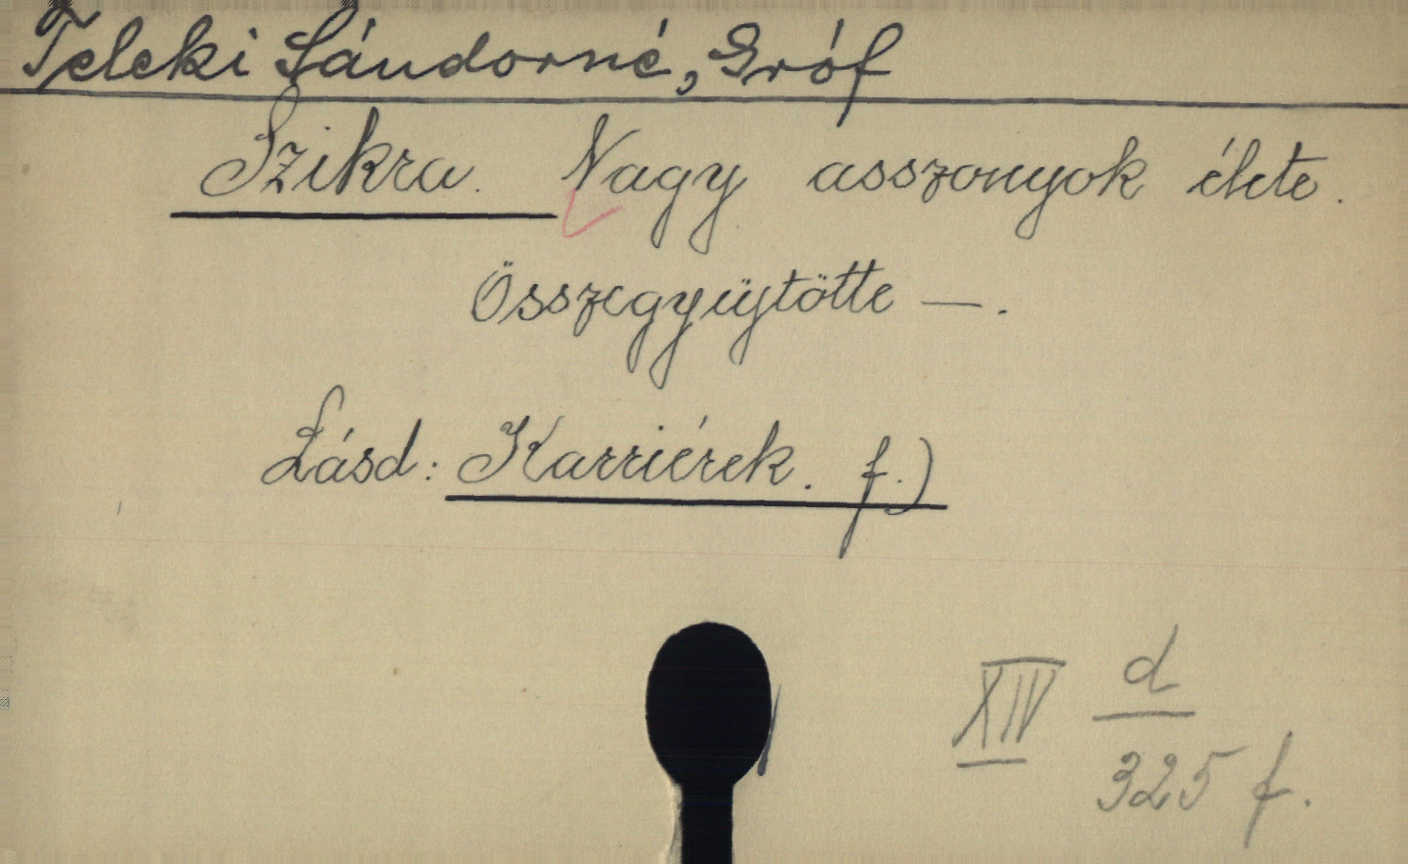 Teleki Sándorné, Gróf
Szikra. Nagy asszonyok élete.
Összegyüjtötte —.
Lásd: Karriérek. f.)
XIV d
325 f.